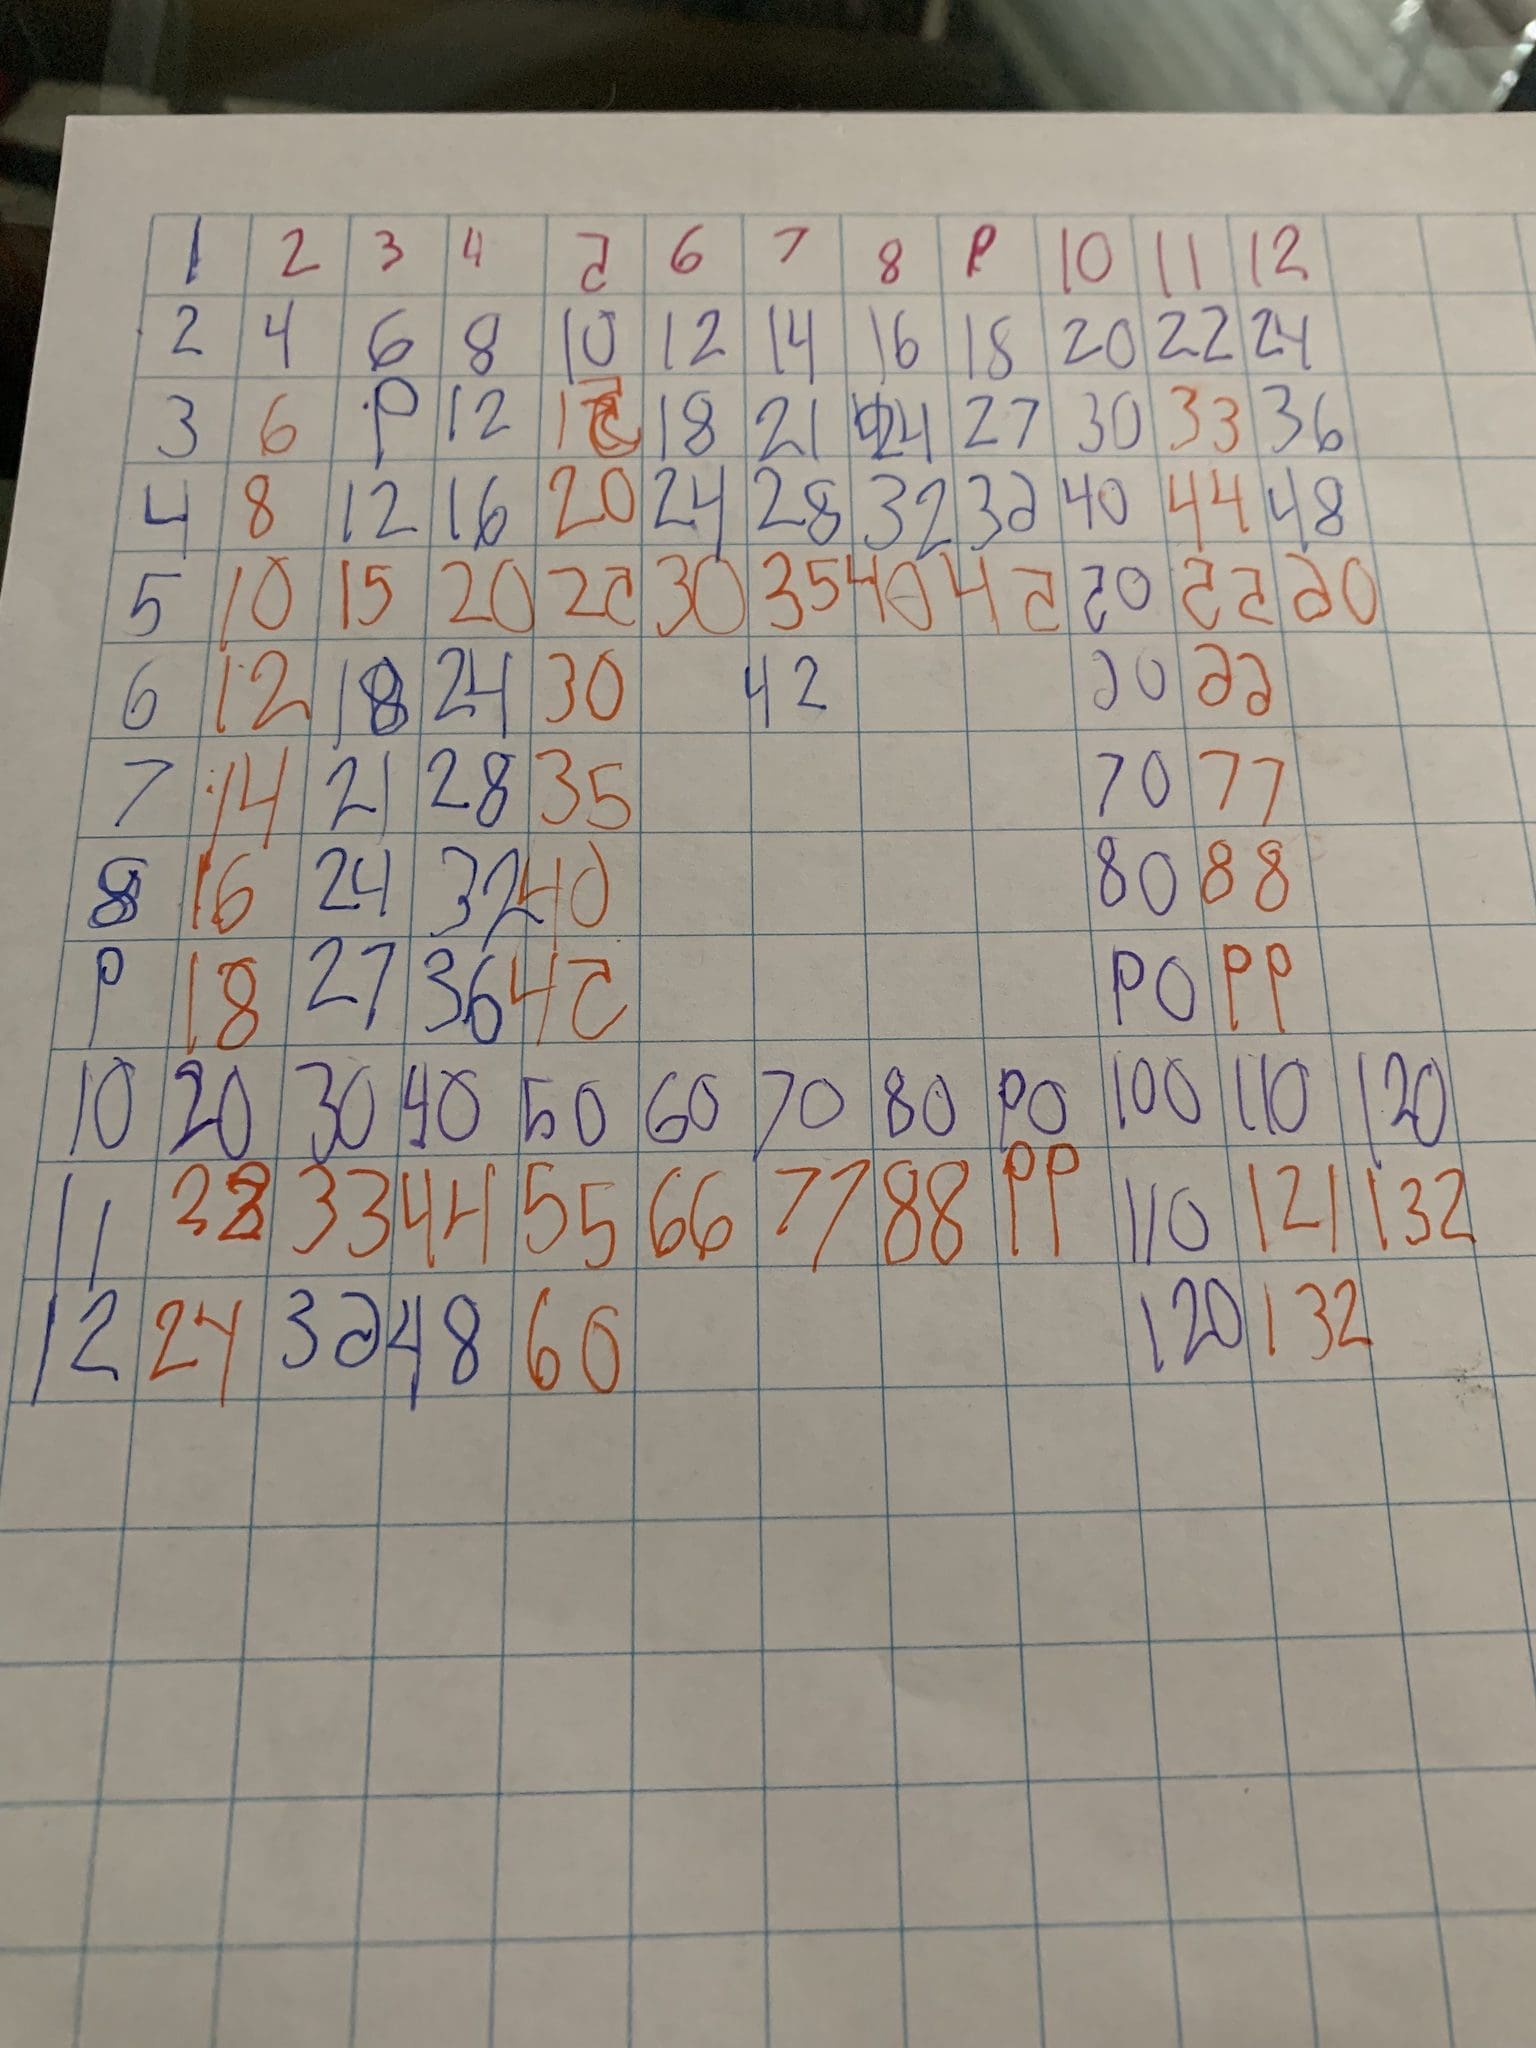 1 2 3 4 5 6 7 8 9 10 11 12
2 4 6 8 10 12 14 16 18 20 22 24
3 6 9 12 15 18 21 24 27 30 33 36
4 8 12 16 20 24 28 32 36 40 44 48
5 10 15 20 25 30 35 40 45 50 55 60
6 12 18 24 30 42 60 66
7 14 21 28 35 70 77
8 16 24 32 40 80 88
9 18 27 36 45 90 99
10 20 30 40 50 60 70 80 90 100 110 120
11 22 33 44 55 66 77 88 99 110 121 132
12 24 36 48 60 120 132